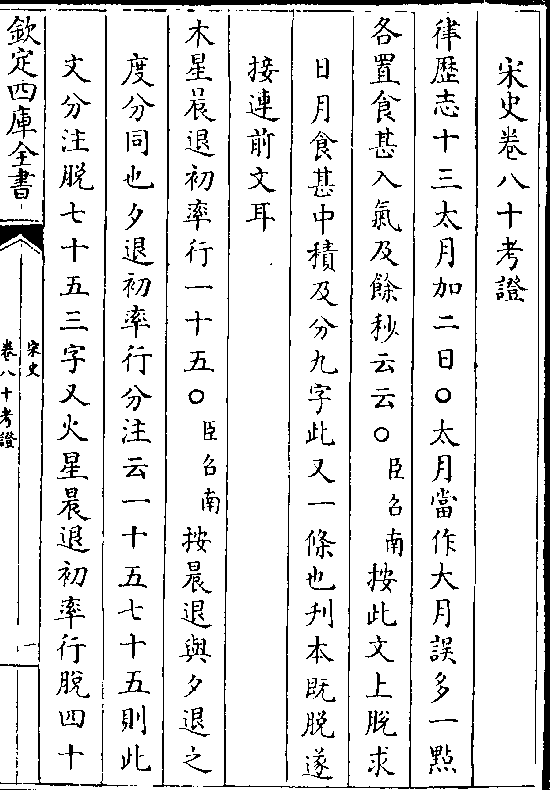 宋史卷八十考證
律歷志十三太月加二日○太月當作大月誤多一點
各置食甚入氣及餘秒云云○臣召南按此文上脫求
日月食甚中積及分九字此又一條也刋本既脫遂
接連前文耳
木星晨退初率行一十五○臣召南按晨退與夕退之
度分同也夕退初率行分注云一十五七十五則此
文分注脫七十五三字又火星晨退初率行脫四十
欽定四庫全書
宋史
卷八十考證
一